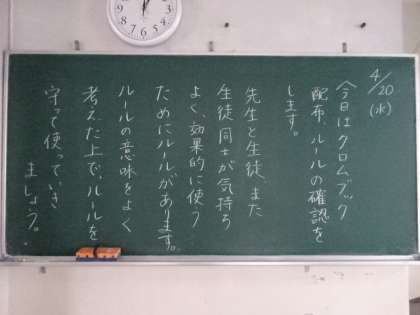 4/20
(水)
今日はクロムブック
配布、ルールの確認を
します。
先生と生徒、また
生徒同士が気持ち
よく、効果的に使う
ためにルールがあります。
ルールの意味をよく
考えた上で、ルールを
守って使っていき
ましょう。